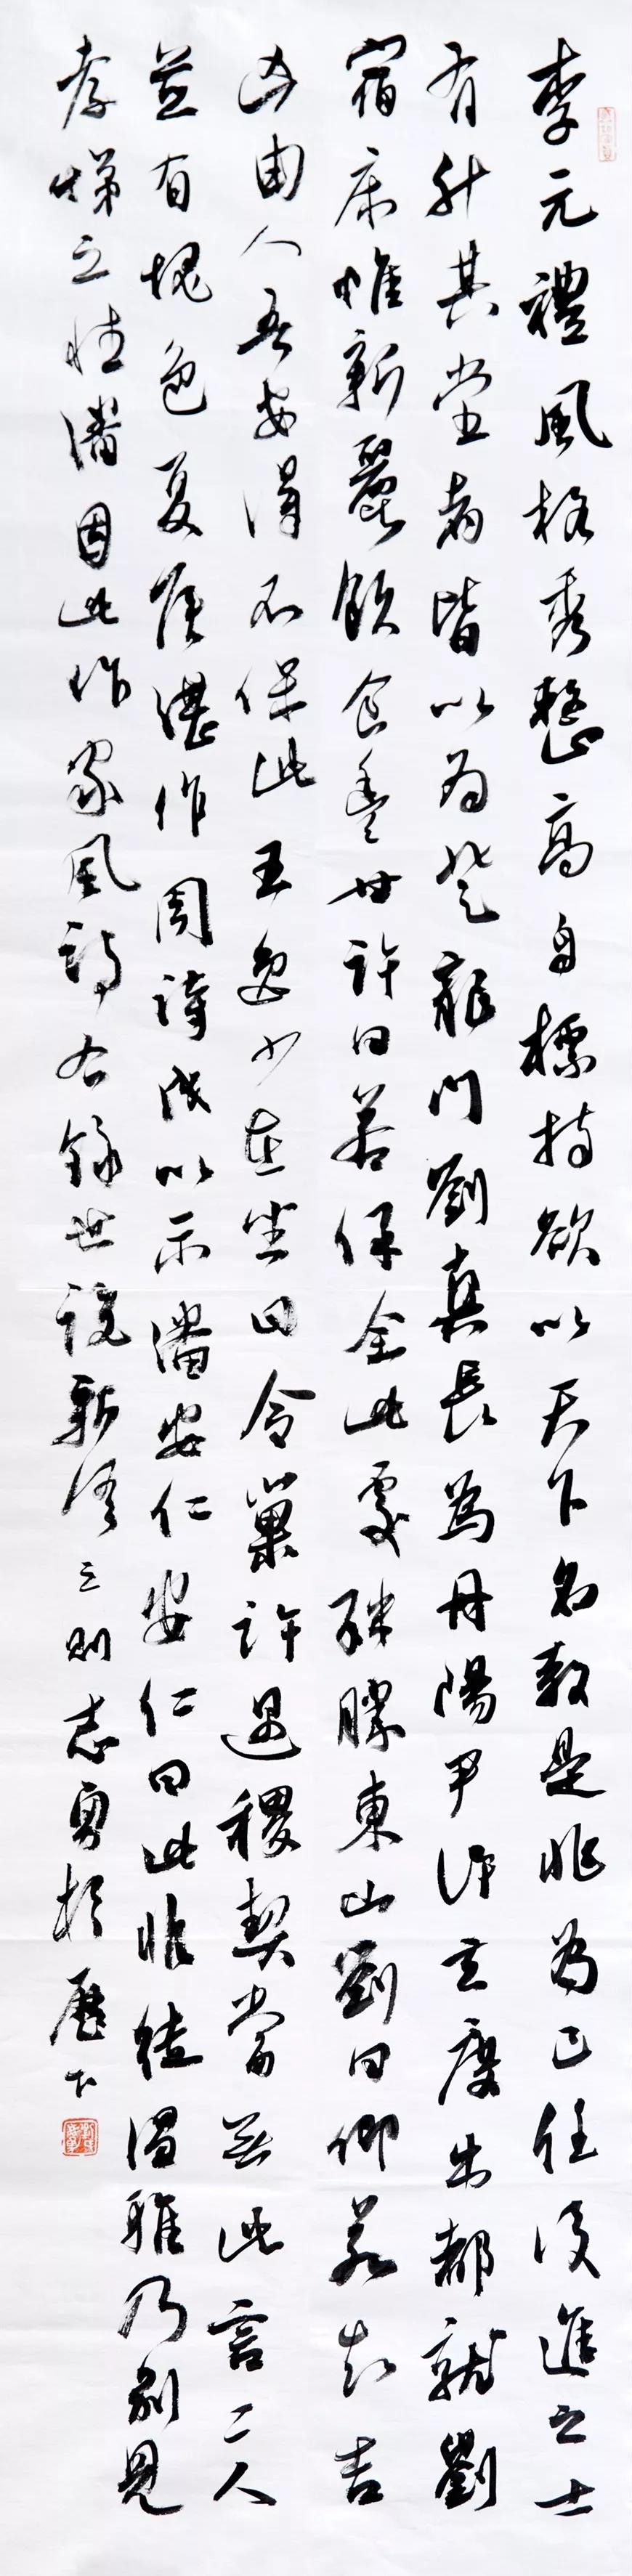 李元禮風格秀整高自標持欲以天下名教是非為己任後進之士
有升其堂者皆以為登龍門劉真長為丹陽尹許玄度出都就劉
宿床帷新麗飲食豐甘許曰若保全此處殊勝東山劉曰卿若知吉
凶由人吾安得不保此王逸少在坐曰令巢許遇稷契當無此言二人
並有愧色夏侯湛作周詩成以示潘安仁安仁曰此非徒溫雅乃別見
孝悌之性潘因此作家風詩右錄世說新語三則志勇於歷下